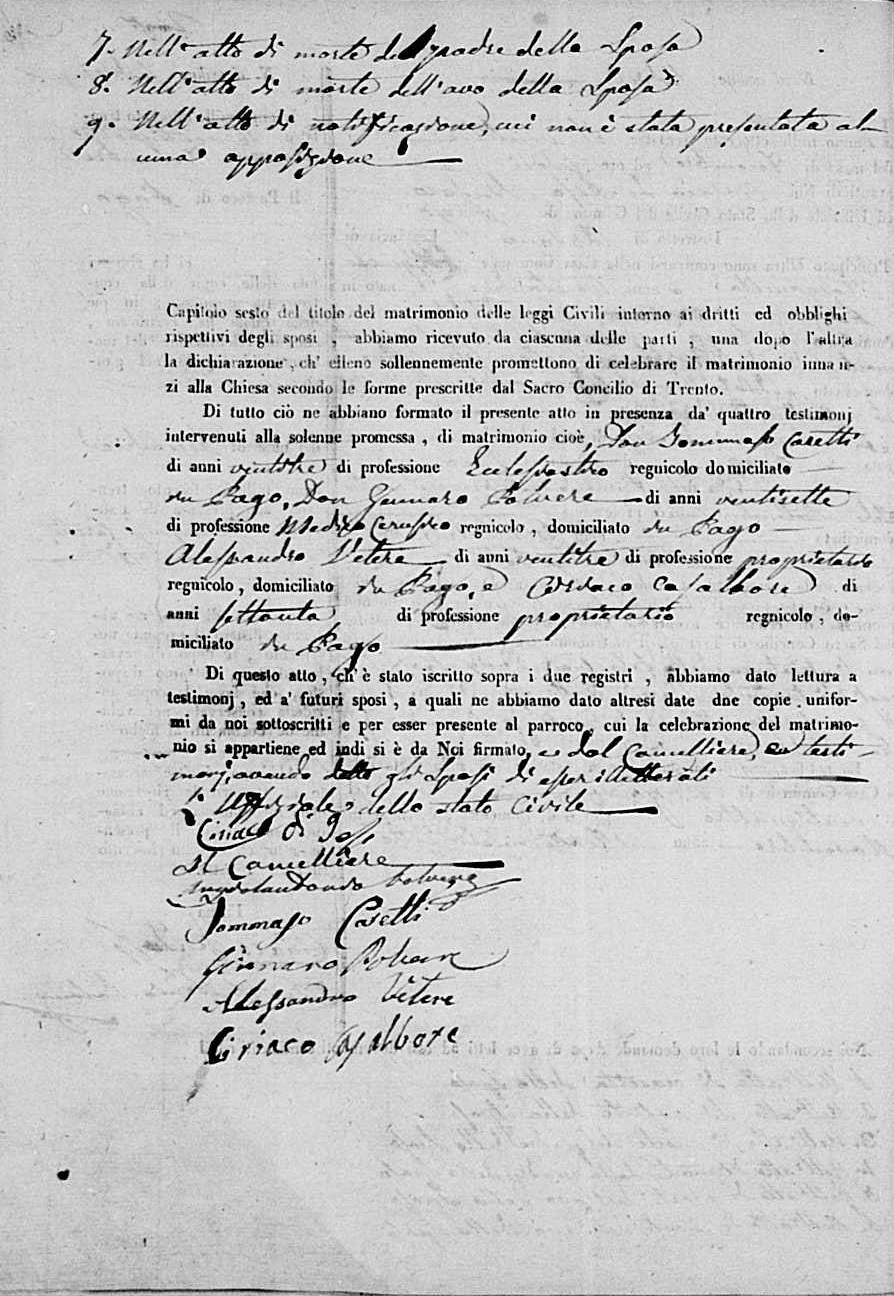 7. Nell'atto di morte del padre della Sposa
8. Nell'atto di morte dell'avo della Sposa
9. Nell'atto di notificazione, cui non è stata presentata al-
cuna opposizione
Capitolo sesto del titolo del matrimonio delle leggi Civili intorno ai dritti ed obblighi
rispettivi degli sposi , abbiamo ricevuto da ciascuna delle parti , una dopo l'altra
la dichiarazione , ch' elleno sollennemente promettono di celebrare il matrimonio innan-
zi alla Chiesa secondo le forme prescritte dal Sacro Concilio di Trento.
Di tutto ciò ne abbiano formato il presente atto in presenza da' quattro testimonj
intervenuti alla solenne promessa , di matrimonio cioè, Don Tommaso Casetti
di anni ventitre di professione Eclesiastico regnicolo domiciliato
in Pago, Don Gennaro Polvere di anni ventisette
di professione Medico Cerusico regnicolo , domiciliato in Pago
Alessandro Vetere di anni ventitre di professione proprietario
regnicolo , domiciliato in Pago, e Ciriaco Casalbore di
anni settanta di professione proprietario regnicolo , do-
miciliato in Pago
Di questo atto , ch' è stato iscritto sopra i due registri , abbiamo dato lettura a
testimonj , ed a' futuri sposi , a quali ne abbiamo dato altresi date dne copie unifor-
mi da noi sottoscritti e per esser presente al parroco , cui la celebrazione del matrimo-
nio si appartiene ed indi si è da Noi firmato, e dal Cancelliere, e testi
monj, avendo detto gli Sposi di esser illetterati
L' Uffiziale dello stato Civile
Ciriaco di
Il Cancelliere
Polvere
Tommaso Casetti
Gennaro Polvere
Alessandro Vetere
Ciriaco Casalbore